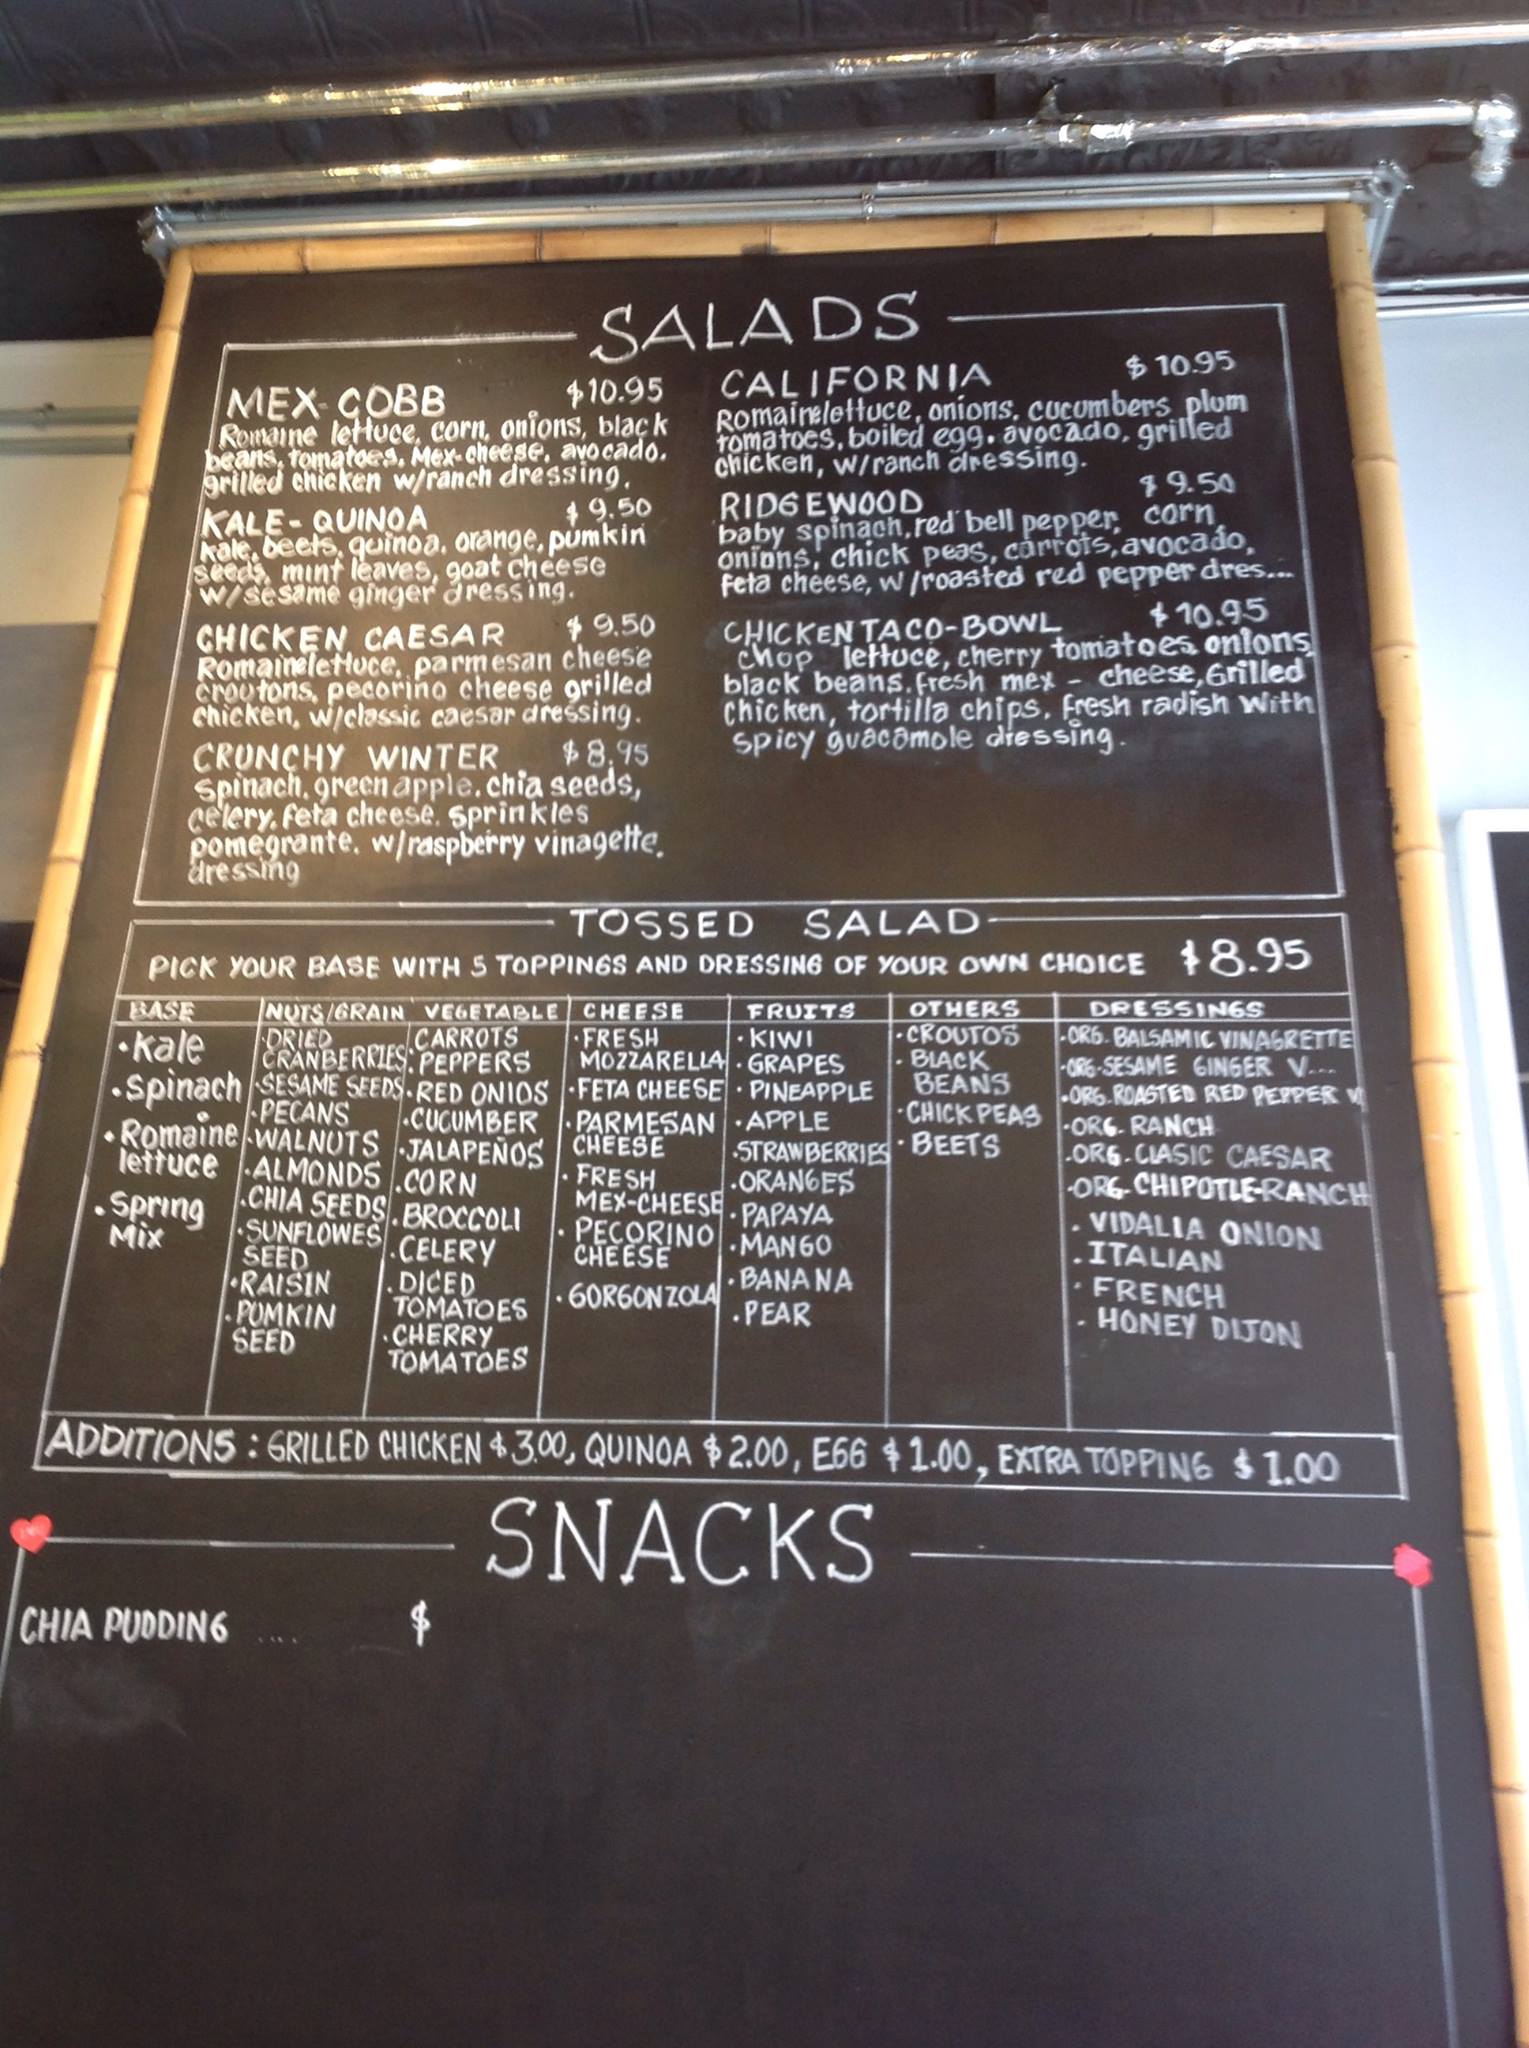 SALADS
MEX-COBB $10.95
Romaine lettuce, corn, onions, black
beans, tomatoes, Mex-cheese, avocado,
grilled chicken w/ranch dressing.
KALE-QUINOA $9.50
kale, beets, quinoa, orange, pumkin
seeds, mint leaves, goat cheese
w/sesame ginger dressing.
CHICKEN CAESAR $9.50
Romaine lettuce, parmesan cheese
croutons, pecorino cheese grilled
chicken, w/classic caesar dressing.
CRUNCHY WINTER $8.95
Spinach, green apple, chia seeds,
celery, feta cheese, sprinkles
pomegrante, w/raspberry vinagette,
dressing
CALIFORNIA $10.95
Romaine lettuce, onions, cucumbers plum
tomatoes, boiled egg, avocado, grilled
chicken, w/ranch dressing.
RIDGEWOOD $9.50
baby spinach, red bell pepper, corn,
onions, chick peas, carrots, avocado,
feta cheese, w/roasted red pepper dres...
CHICKEN TACO-BOWL $10.95
chop lettuce, cherry tomatoes, onions,
black beans, fresh mex - cheese, Grilled
Chicken, tortilla chips, fresh radish with
spicy guacamole dressing.
TOSSED SALAD
PICK YOUR BASE WITH 5 TOPPINGS AND DRESSING OF YOUR OWN CHOICE $8.95
BASE
• Kale
• Spinach
• Romaine
lettuce
• Spring
Mix
NUTS/GRAIN
• DRIED
CRANBERRIES
• SESAME SEEDS
• PECANS
• WALNUTS
• ALMONDS
• CHIA SEEDS
• SUNFLOWES
SEED
• RAISIN
• PUMKIN
SEED
VEGETABLE
CARROTS
• PEPPERS
• RED ONIOS
• CUCUMBER
• JALAPEÑOS
• CORN
• BROCCOLI
• CELERY
• DICED
TOMATOES
• CHERRY
TOMATOES
CHEESE
• FRESH
MOZZARELLA
• FETA CHEESE
• PARMESAN
CHEESE
• FRESH
MEX-CHEESE
• PECORINO
CHEESE
• GORGONZOLA
FRUITS
• KIWI
• GRAPES
• PINEAPPLE
• APPLE
• STRAWBERRIES
• ORANGES
• PAPAYA
• MANGO
• BANANA
• PEAR
OTHERS
• CROUTOS
• BLACK
BEANS
• CHICK PEAS
• BEETS
DRESSINGS
• ORG. BALSAMIC VINAGRETTE
• ORG. SESAME GINGER V...
• ORG. ROASTED RED PEPPER V
• ORG. RANCH
• ORG. CLASIC CAESAR
• ORG. CHIPOTLE-RANCH
• VIDALIA ONION
• ITALIAN
- FRENCH
- HONEY DIJON
ADDITIONS: GRILLED CHICKEN $3.00, QUINOA $2.00, EGG $1.00, EXTRA TOPPING $1.00
SNACKS
CHIA PUDDING .... $